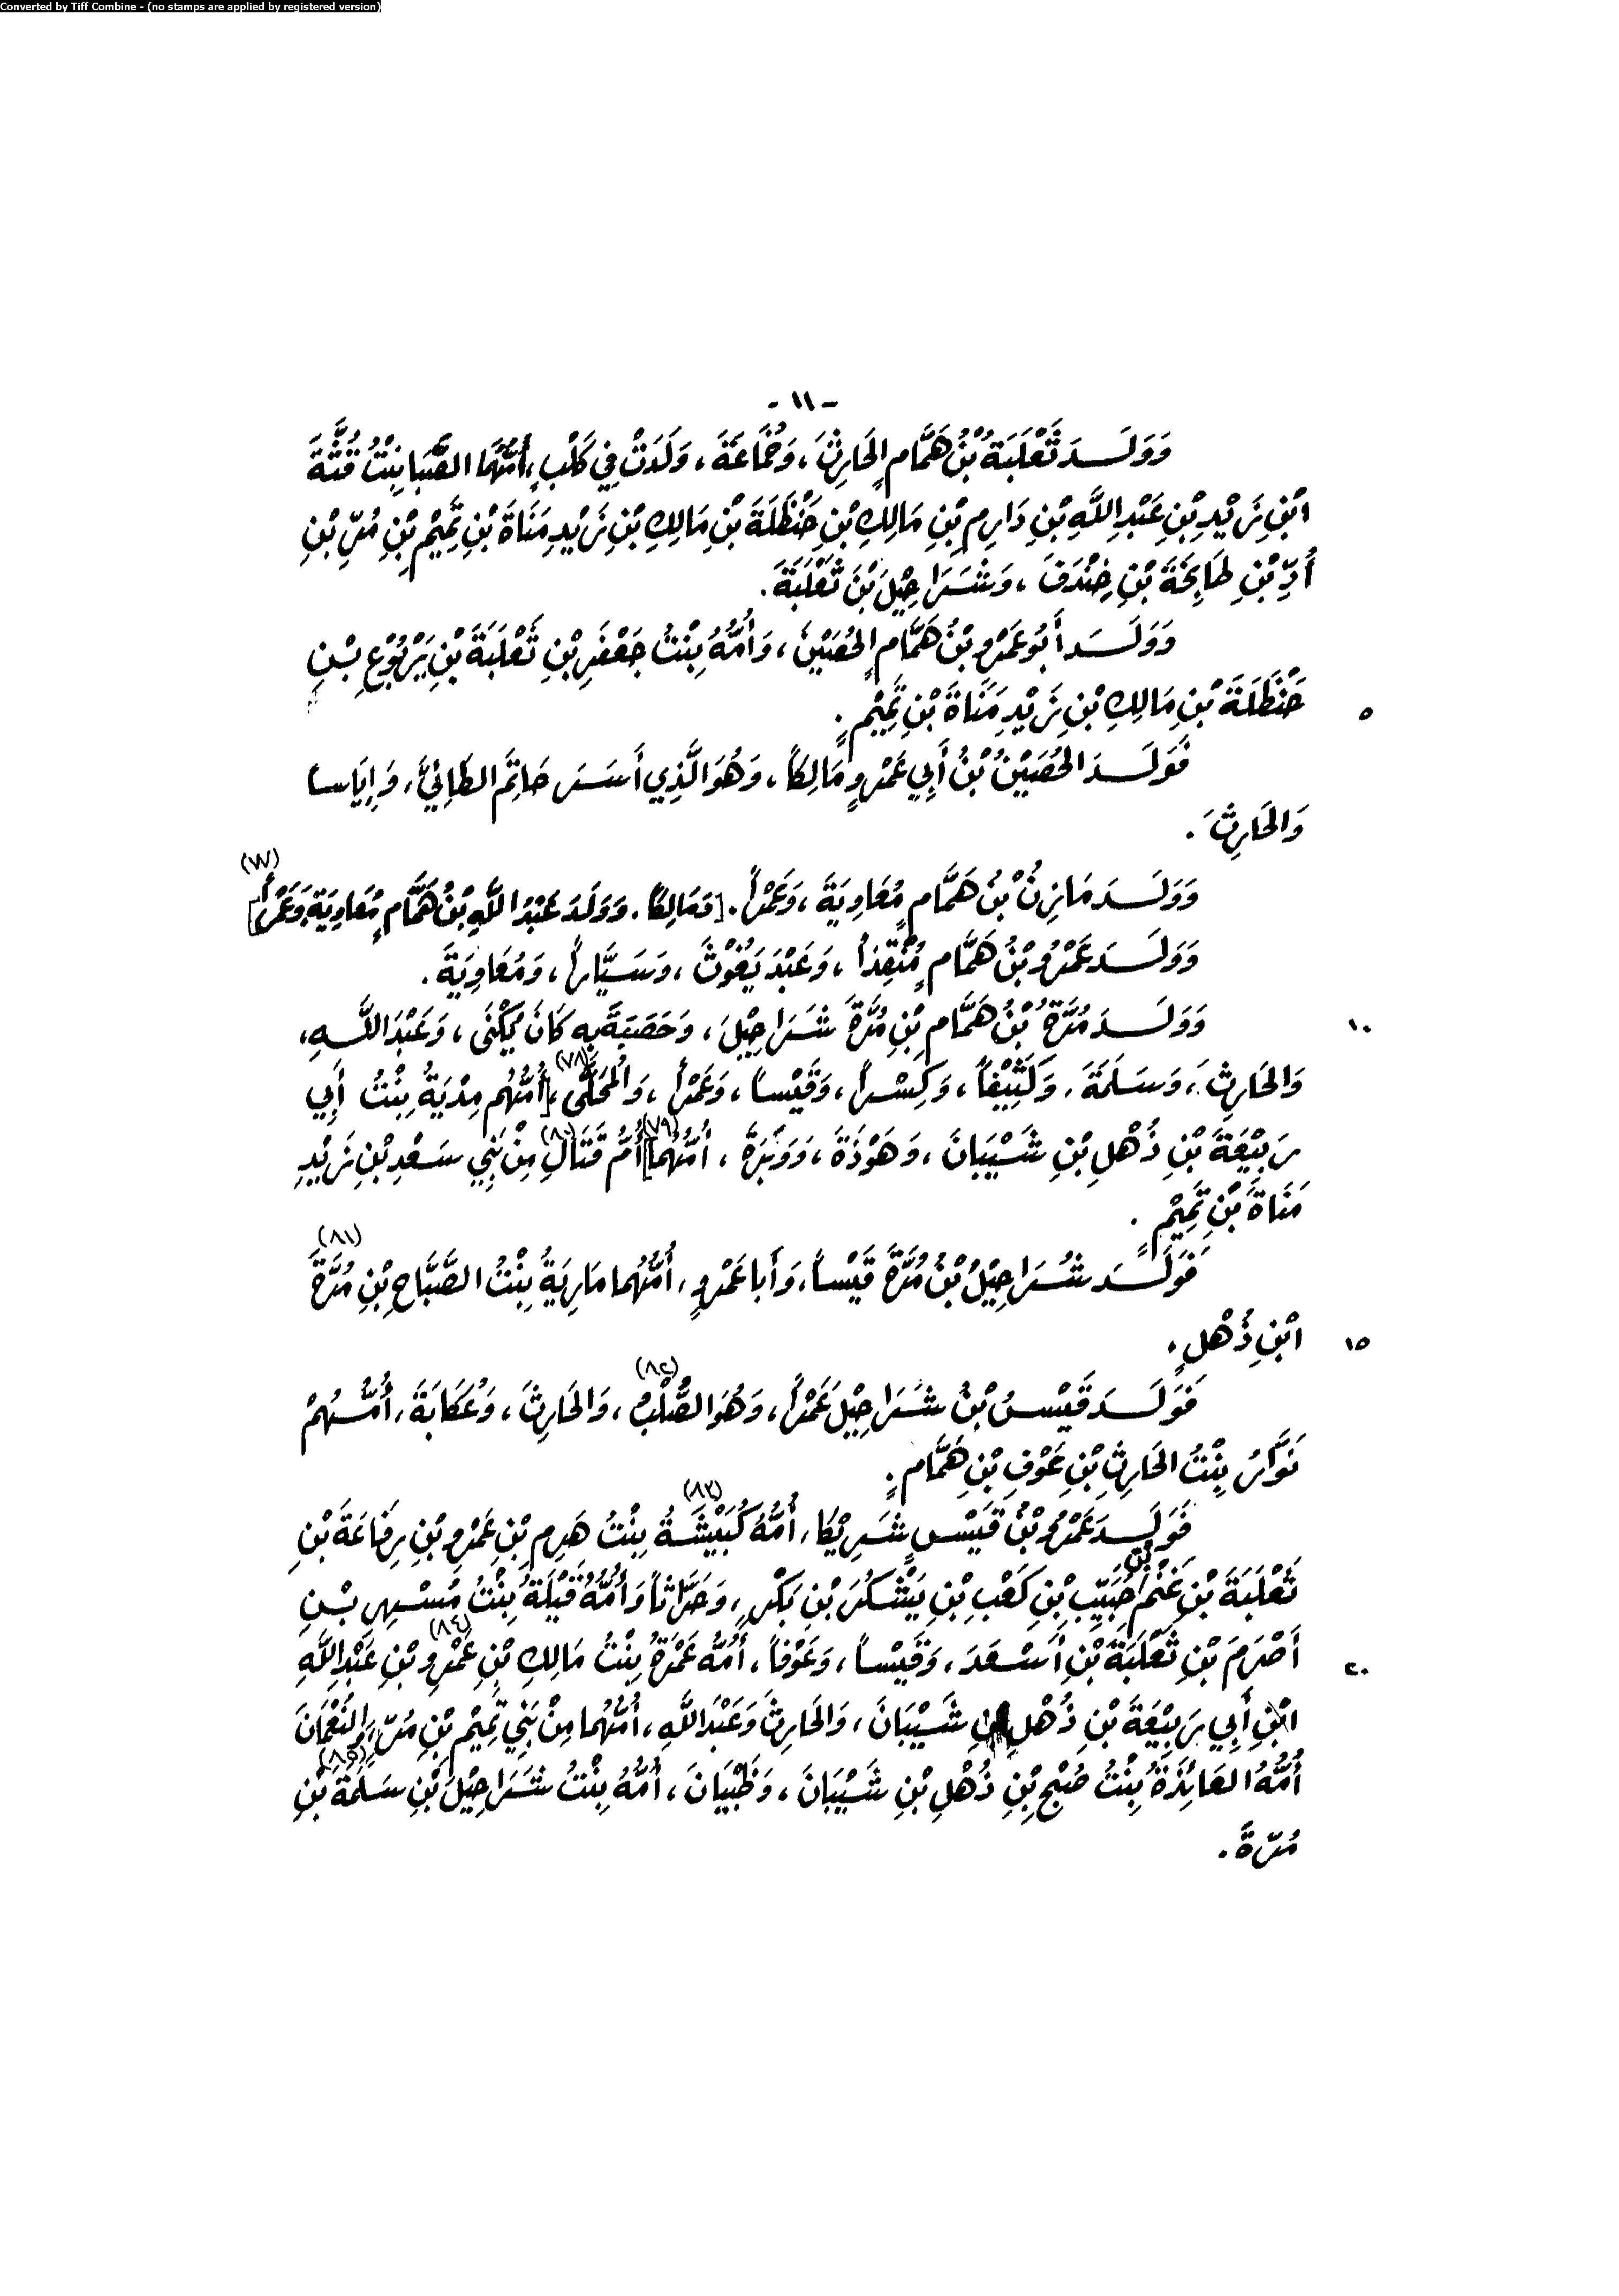 Converted by Tiff Combine - (no stamps are applied by registered version)
- ١١ -
وَوَلَدَ ثَعْلَبَةُ بْنُ هَمَّامٍ الحَارِثَ، وَخُمَاعَةَ، وَلَدَتْ فِي كَلْبٍ، أُمُّهُمَا الصَّبَا بِنْتُ قُنَّةَ
ابْنِ زَيْدِ بْنِ عَبْدِ اللَّهِ بْنِ دَارِمِ بْنِ مَالِكِ بْنِ حَنْظَلَةَ بْنِ مَالِكِ بْنِ زَيْدِ مَنَاةَ بْنِ تَمِيْمِ بْنِ مُرِّ بْنِ
أُدِّ بْنِ طَابِخَةَ بْنِ خِنْدَفَ، وَشَرَاحِيْلَ بْنَ ثَعْلَبَةَ.
وَوَلَدَ أَبُو عَمْرِو بْنُ هَمَّامٍ الحُصَيْنَ، وَأُمُّهُ بِنْتُ جَعْفَرِ بْنِ ثَعْلَبَةَ بْنِ يَرْبُوْعِ بْنِ
حَنْظَلَةَ بْنِ مَالِكِ بْنِ زَيْدِ مَنَاةَ بْنِ تَمِيْمٍ. ٥
فَوَلَدَ الحُصَيْنُ بْنُ أَبِي عَمْرٍو مَالِكاً، وَهُوَ الَّذِي أَسَرَ حَاتِمَ الطَّائِيَّ، وَإِيَاساً
وَالحَارِثَ.
وَوَلَدَ مَازِنُ بْنُ هَمَّامٍ مُعَاوِيَةَ، وَعَمْراً. [وَمَالِكاً. وَوَلَدَ عَبْدُ اللَّهِ بْنُ هَمَّامٍ مُعَاوِيَةَ وَعَمْراً] (٧٧)
وَوَلَدَ عَمْرُو بْنُ هَمَّامٍ مُنْقِذاً، وَعَبْدَ يَغُوْثَ، وَسَيَّاراً، وَمُعَاوِيَةَ.
وَوَلَدَ مُرَّةُ بْنُ هَمَّامِ بْنِ مُرَّةَ شَرَاحِيْلَ، وَحَصَبَةَ بِهِ كَانَ يُكْنَى، وَعَبْدَ اللَّهِ، ١٠
وَالحَارِثَ، وَسَلَمَةَ، وَكَثِيْفاً، وَكِسْراً، وَقَيْساً، وَعَمْراً، وَالْمُحَلَّى، (٧٨) [أُمُّهُم مِدْيَةُ بِنْتُ أَبِي
رَبِيْعَةَ بْنِ ذُهْلِ بْنِ شَيْبَانَ، وَهَوْذَةَ، وَوَبَرَةَ، أُمُّهُمَا] (٧٩) أُمُّ قَتَالِ (٨٠) مِنْ بَنِي سَعْدِ بْنِ زَيْدِ
مَنَاةَ بْنِ تَمِيْمٍ.
فَوَلَدَ شُرَاحِيْلُ بْنُ مُرَّةَ قَيْساً، وَأَبَا عَمْرٍو، أُمُّهُمَا مَارِيَةُ بِنْتُ الصَّبَّاحِ بْنِ مُرَّةَ (٨١)
ابْنِ ذُهْلٍ. ١٥
فَوَلَدَ قَيْسُ بْنُ شَرَاحِيْلَ عَمْراً، وَهُوَ الصُّلْبُ (٨٢)، وَالحَارِثَ، وَعُكَابَةَ، أُمُّهُمْ
نَوَّارُ بِنْتُ الحَارِثِ بْنِ عَوْفِ بْنِ هَمَّامٍ.
فَوَلَدَ عَمْرُو بْنُ قَيْسٍ شَرِيْكاً، أُمُّهُ كُبَيْشَةُ (٨٣) بِنْتُ هَرِمِ بْنِ عَمْرِو بْنِ رِفَاعَةَ بْنِ
ثَعْلَبَةَ بْنِ غَنْمِ بْنِ حُبَيِّبِ بْنِ كَعْبِ بْنِ يَشْكُرَ بْنِ بَكْرٍ، وَحَرَّاثاً وَأُمُّهُ قَيْلَةُ بِنْتُ مُسْهِرِ بْنِ
أَصْرَمَ بْنِ ثَعْلَبَةَ بْنِ أَسْعَدَ، وَقَيْساً، وَعَوْفاً، أُمُّهُ عَمْرَةُ بِنْتُ مَالِكِ بْنِ عَمْرِو (٨٤) بْنِ عَبْدِ اللَّهِ ٢٠
ابْنِ أَبِي رَبِيْعَةَ بْنِ ذُهْلِ بْنِ شَيْبَانَ، وَالحَارِثَ وَعَبْدَ اللَّهِ، أُمُّهُمَا مِنْ بَنِي تَمِيْمِ بْنِ مُرٍّ، وَالنُّعْمَانَ
أُمُّهُ العَائِذَةُ بِنْتُ صُبْحِ بْنِ ذُهْلِ بْنِ شَيْبَانَ، وَظَبْيَانَ، أُمُّهُ بِنْتُ شَرَاحِيْلَ بْنِ سَلَمَةَ (٨٥) بْنِ
مُرَّةَ.